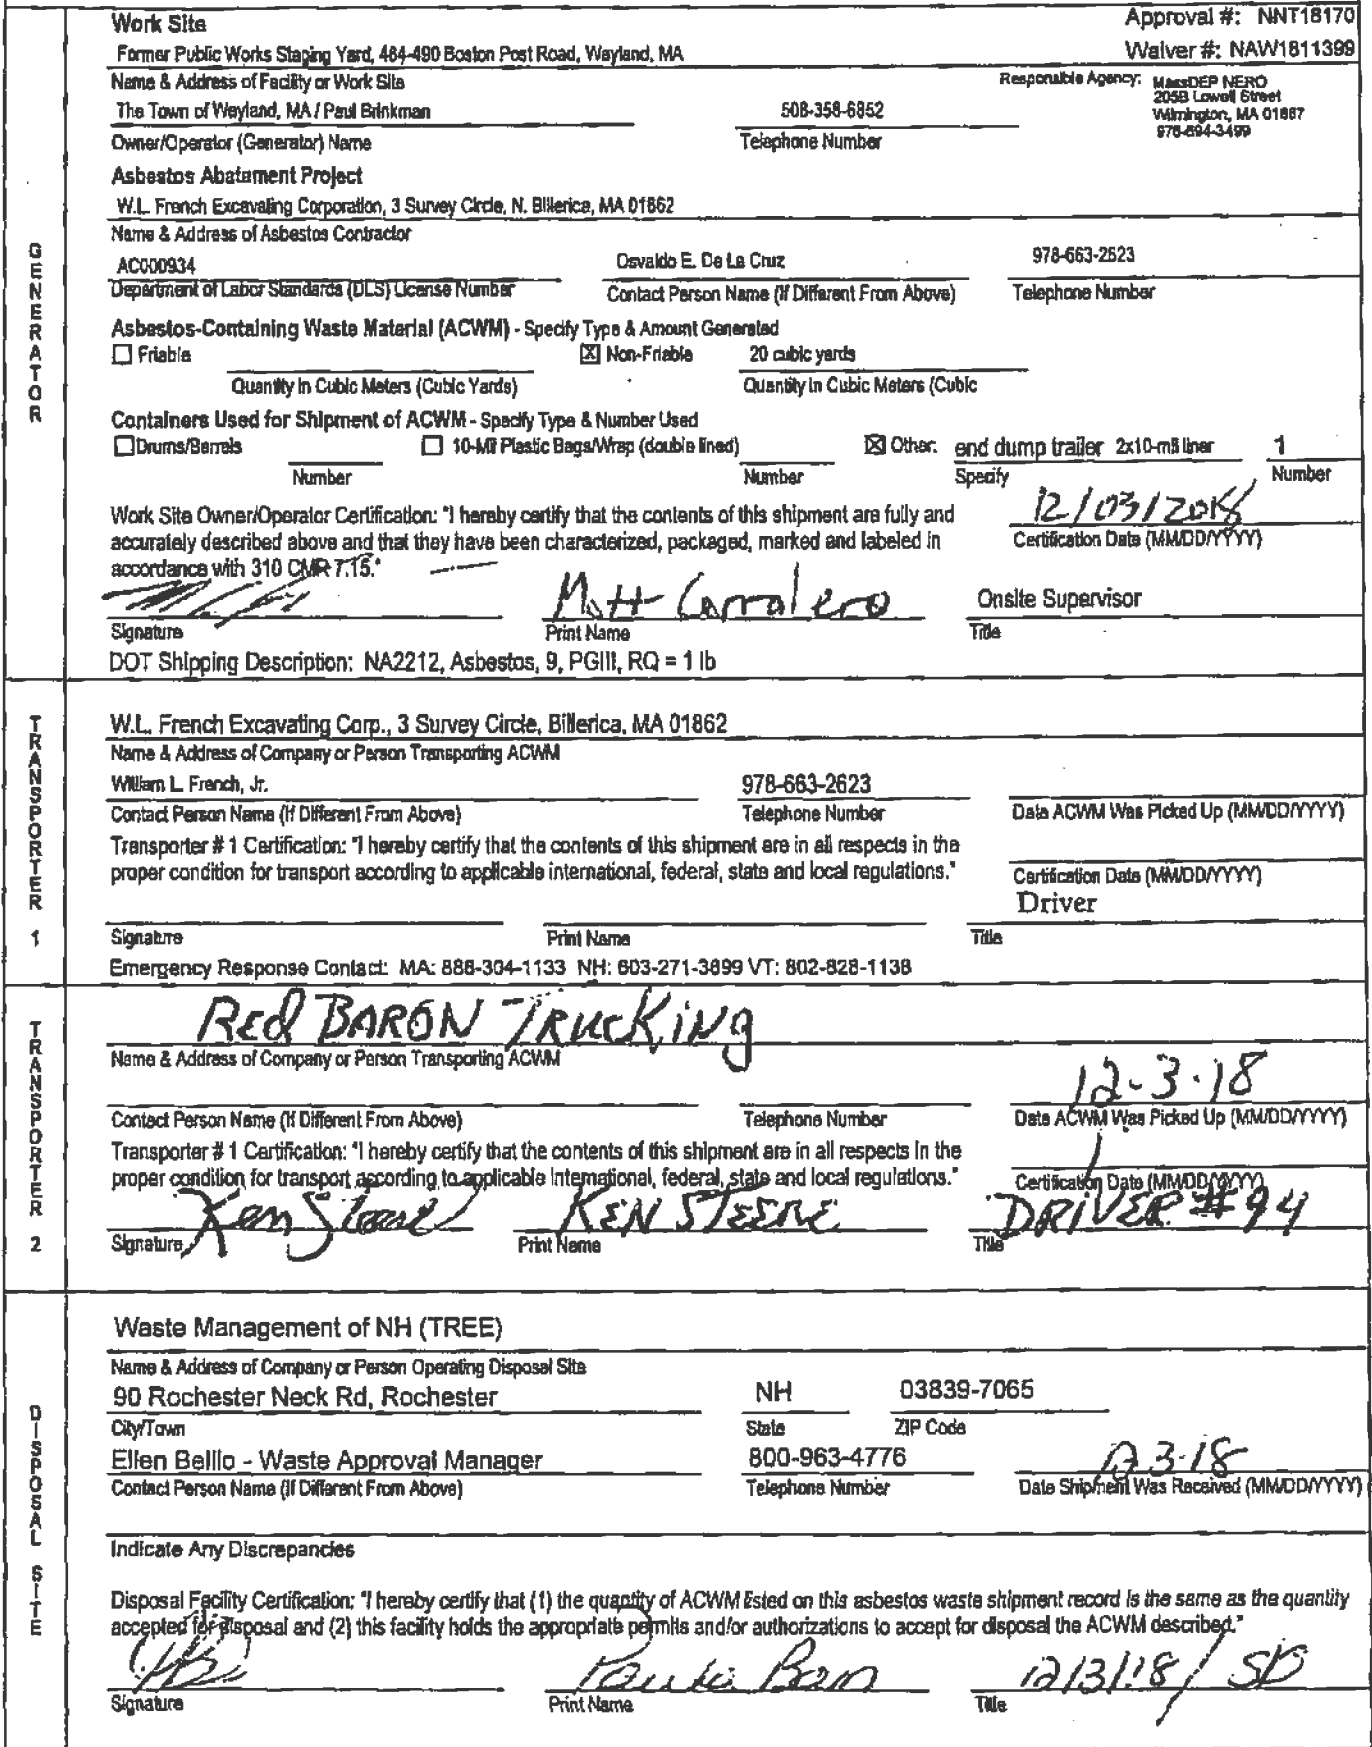 Work Site
Approval #: NNT18170
Former Public Works Staging Yard, 484-490 Boston Post Road, Wayland, MA
Waiver #: NAW1811399
Name & Address of Facility or Work Site
Responsible Agency: MassDEP NERO
205B Lowell Street
Wilmington, MA 01887
978-694-3499
The Town of Wayland, MA / Paul Brinkman
508-358-6852
Owner/Operator (Generator) Name
Telephone Number
Asbestos Abatement Project
W.L. French Excavating Corporation, 3 Survey Circle, N. Billerica, MA 01862
Name & Address of Asbestos Contractor
AC000934
Osvaldo E. De La Cruz
978-663-2623
Department of Labor Standards (DLS) License Number
Contact Person Name (If Different From Above)
Telephone Number
Asbestos-Containing Waste Material (ACWM) - Specify Type & Amount Generated
Friable
Non-Friable 20 cubic yards
Quantity in Cubic Meters (Cubic Yards)
Quantity in Cubic Meters (Cubic
Containers Used for Shipment of ACWM - Specify Type & Number Used
Drums/Barrels
10-Mil Plastic Bags/Wrap (double lined)
Other: end dump trailer 2x10-mil liner 1
Number
Number
Specify
Number
Work Site Owner/Operator Certification: "I hereby certify that the contents of this shipment are fully and
accurately described above and that they have been characterized, packaged, marked and labeled in
accordance with 310 CMR 7.15."
12/03/2018
Certification Date (MM/DD/YYYY)
Matt Carralero
Onsite Supervisor
Signature
Print Name
Title
DOT Shipping Description: NA2212, Asbestos, 9, PGIII, RQ = 1 lb
GENERATOR
W.L. French Excavating Corp., 3 Survey Circle, Billerica, MA 01862
Name & Address of Company or Person Transporting ACWM
William L. French, Jr.
978-663-2623
Contact Person Name (If Different From Above)
Telephone Number
Date ACWM Was Picked Up (MM/DD/YYYY)
Transporter # 1 Certification: "I hereby certify that the contents of this shipment are in all respects in the
proper condition for transport according to applicable international, federal, state and local regulations."
Certification Date (MM/DD/YYYY)
Driver
Signature
Print Name
Title
Emergency Response Contact: MA: 888-304-1133 NH: 603-271-3899 VT: 802-828-1138
TRANSPORTER 1
Red BARON TRUCKiNg
Name & Address of Company or Person Transporting ACWM
12-3-18
Contact Person Name (If Different From Above)
Telephone Number
Date ACWM Was Picked Up (MM/DD/YYYY)
Transporter # 1 Certification: "I hereby certify that the contents of this shipment are in all respects in the
proper condition for transport according to applicable international, federal, state and local regulations."
Certification Date (MM/DD/YYYY)
Ken Steere
KEN STEERE
DRIVER #94
Signature
Print Name
Title
TRANSPORTER 2
Waste Management of NH (TREE)
Name & Address of Company or Person Operating Disposal Site
90 Rochester Neck Rd, Rochester
NH
03839-7065
City/Town
State
ZIP Code
Ellen Bellio - Waste Approval Manager
800-963-4776
12 3-18
Contact Person Name (If Different From Above)
Telephone Number
Date Shipment Was Received (MM/DD/YYYY)
Indicate Any Discrepancies
Disposal Facility Certification: "I hereby certify that (1) the quantity of ACWM listed on this asbestos waste shipment record is the same as the quantity
accepted for disposal and (2) this facility holds the appropriate permits and/or authorizations to accept for disposal the ACWM described."
12/3/18 / SD
Signature
Print Name
Title
DISPOSAL SITE